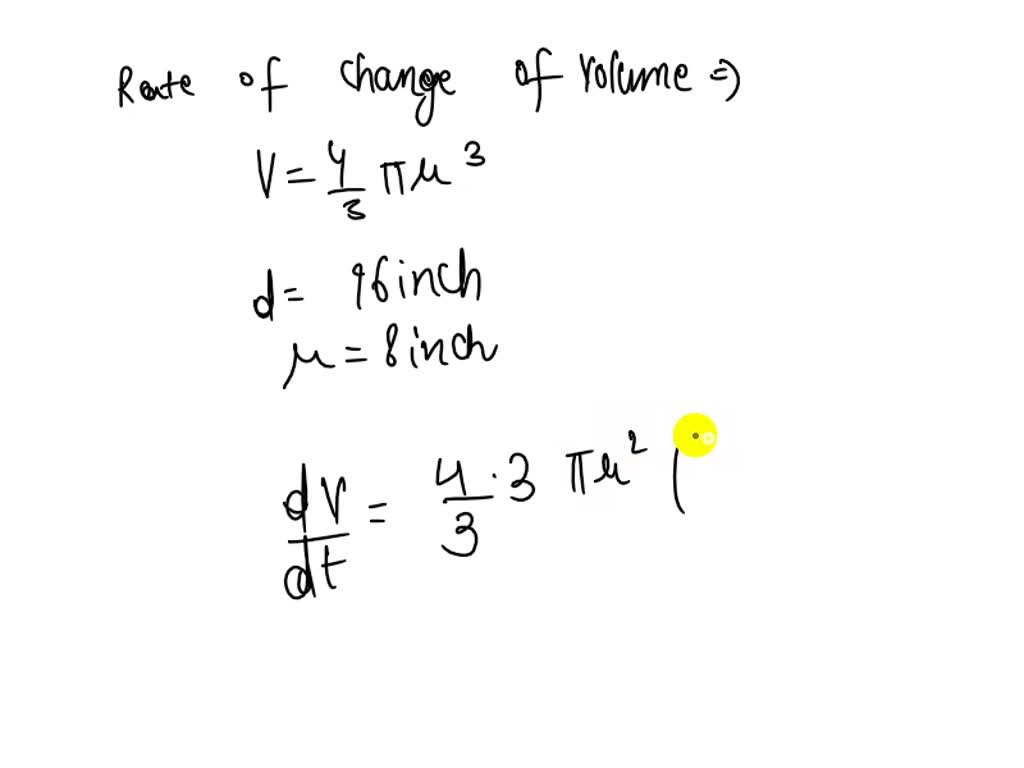 Rate of change of volume ⇒
V = 4/3 πr³
d = 16 inch
r = 8 inch
dV/dt = 4/3 · 3 πr² (